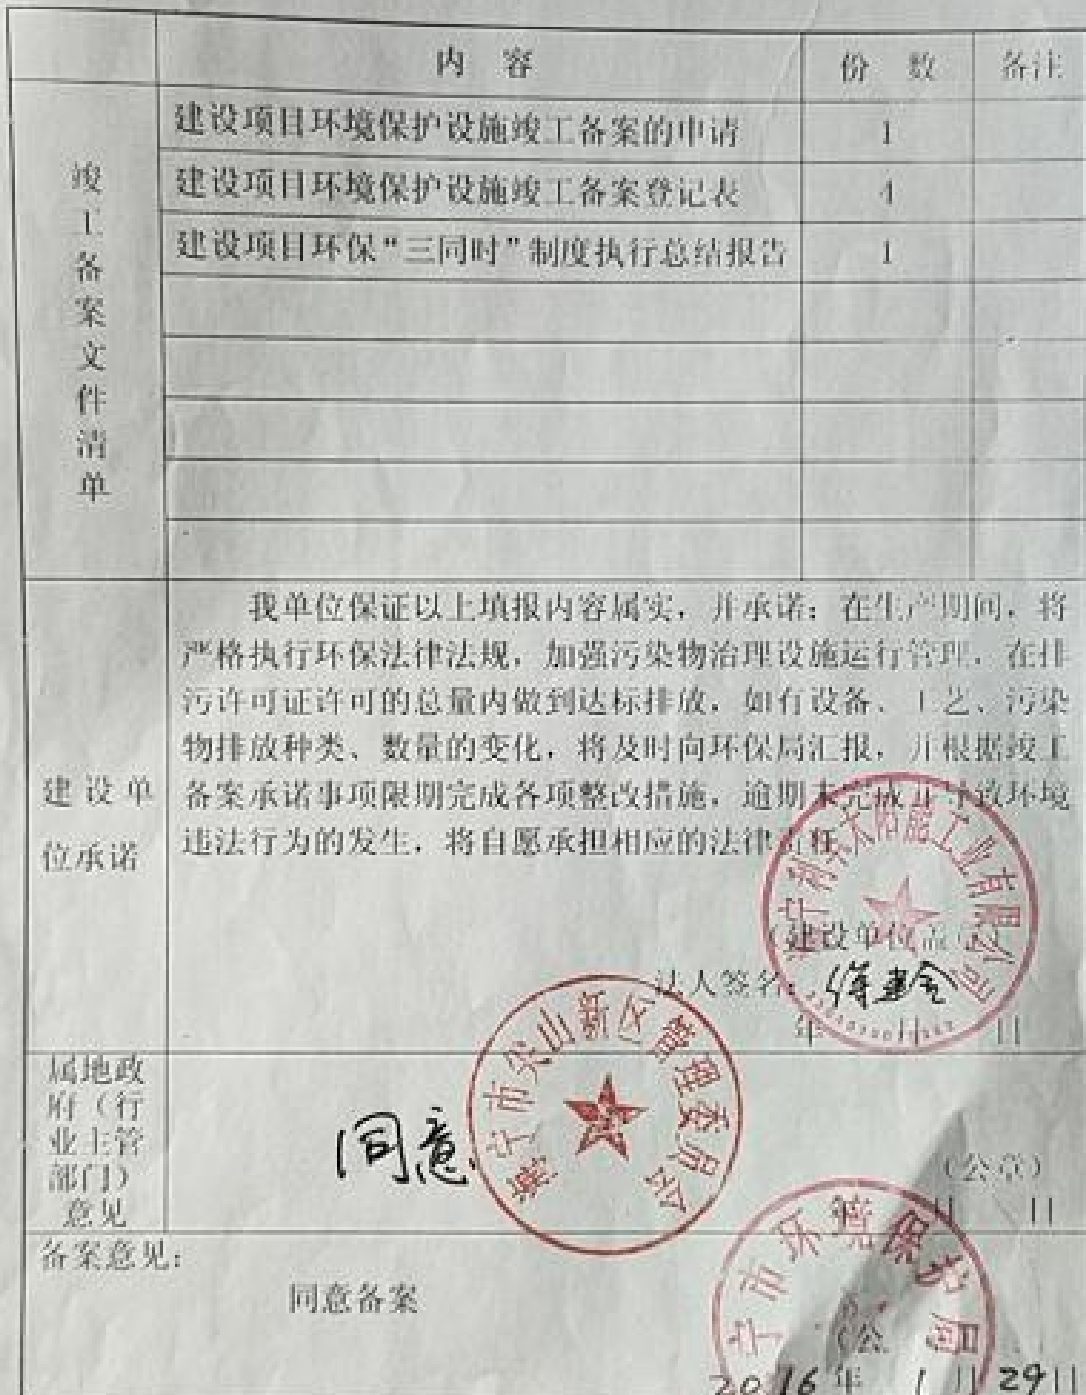 内 容 份 数 备注
竣工备案文件清单
建设项目环境保护设施竣工备案的申请 1
建设项目环境保护设施竣工备案登记表 4
建设项目环保“三同时”制度执行总结报告 1
建设单位承诺
我单位保证以上填报内容属实，并承诺：在生产期间，将
严格执行环保法律法规，加强污染物治理设施运行管理，在排
污许可证许可的总量内做到达标排放，如有设备、工艺、污染
物排放种类、数量的变化，将及时向环保局汇报，并根据竣工
备案承诺事项限期完成各项整改措施，逾期未完成并导致环境
违法行为的发生，将自愿承担相应的法律责任
太阳能工业有限公司
（建设单位盖
法人签名：
年 月 日
属地政
府（行
业主管
部门）
意见
同意
海宁市尖山新区管理委员会
（公章）
年 月 日
备案意见：
同意备案
宁市环境保护局
（公
2016年 1月29日